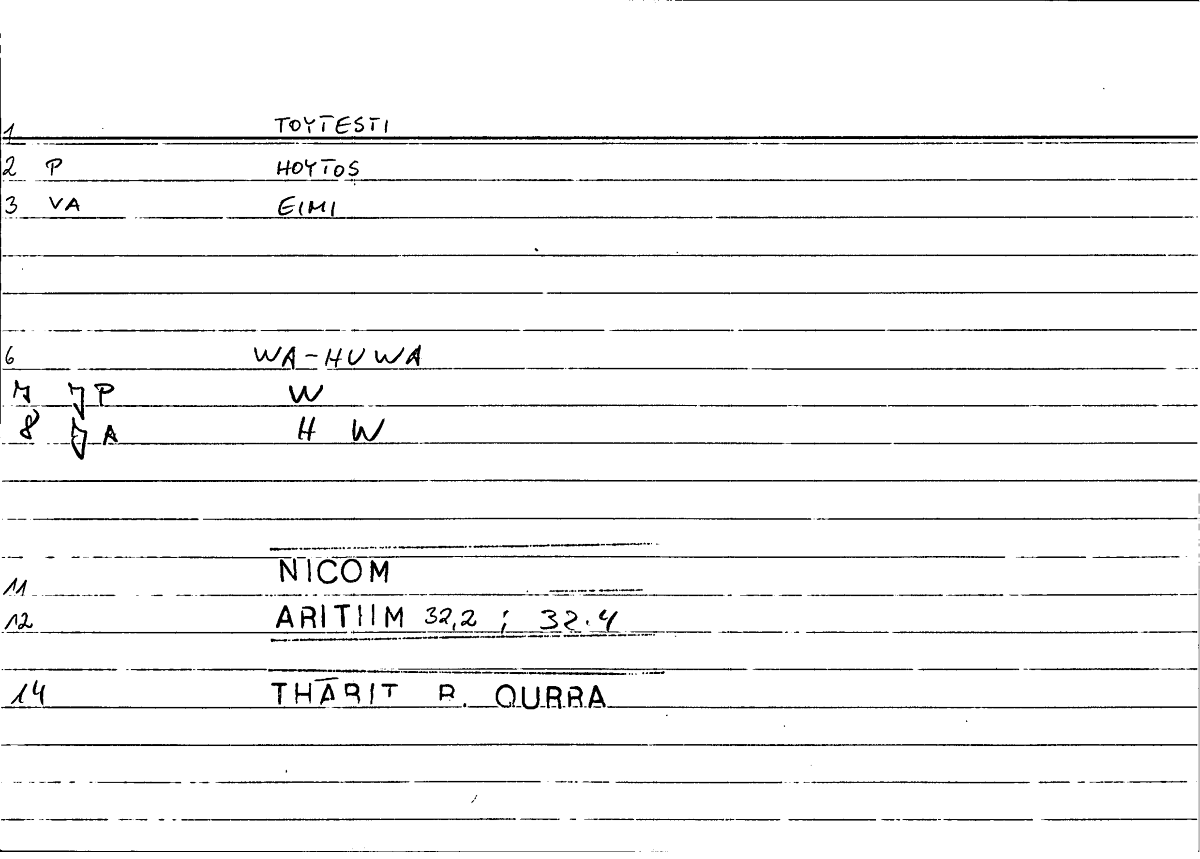 1 TOYTESTI
2 P HOYTOS
3 VA EIMI
6 WA-HUWA
7 P W
8 A H W
11 NICOM
12 ARITIIM 32,2 ; 32.4
14 THĀRIT R. QURRA